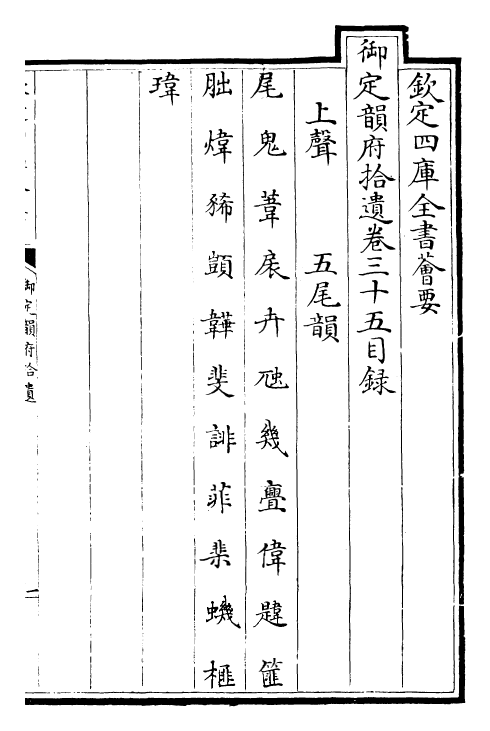 欽定四庫全書薈要
御定韻府拾遺卷三十五目録
上聲　五尾韻
尾鬼葦扆卉虺幾亹偉韙篚
朏煒豨顗韡斐誹菲棐蟣榧
瑋
御定韻府拾遺